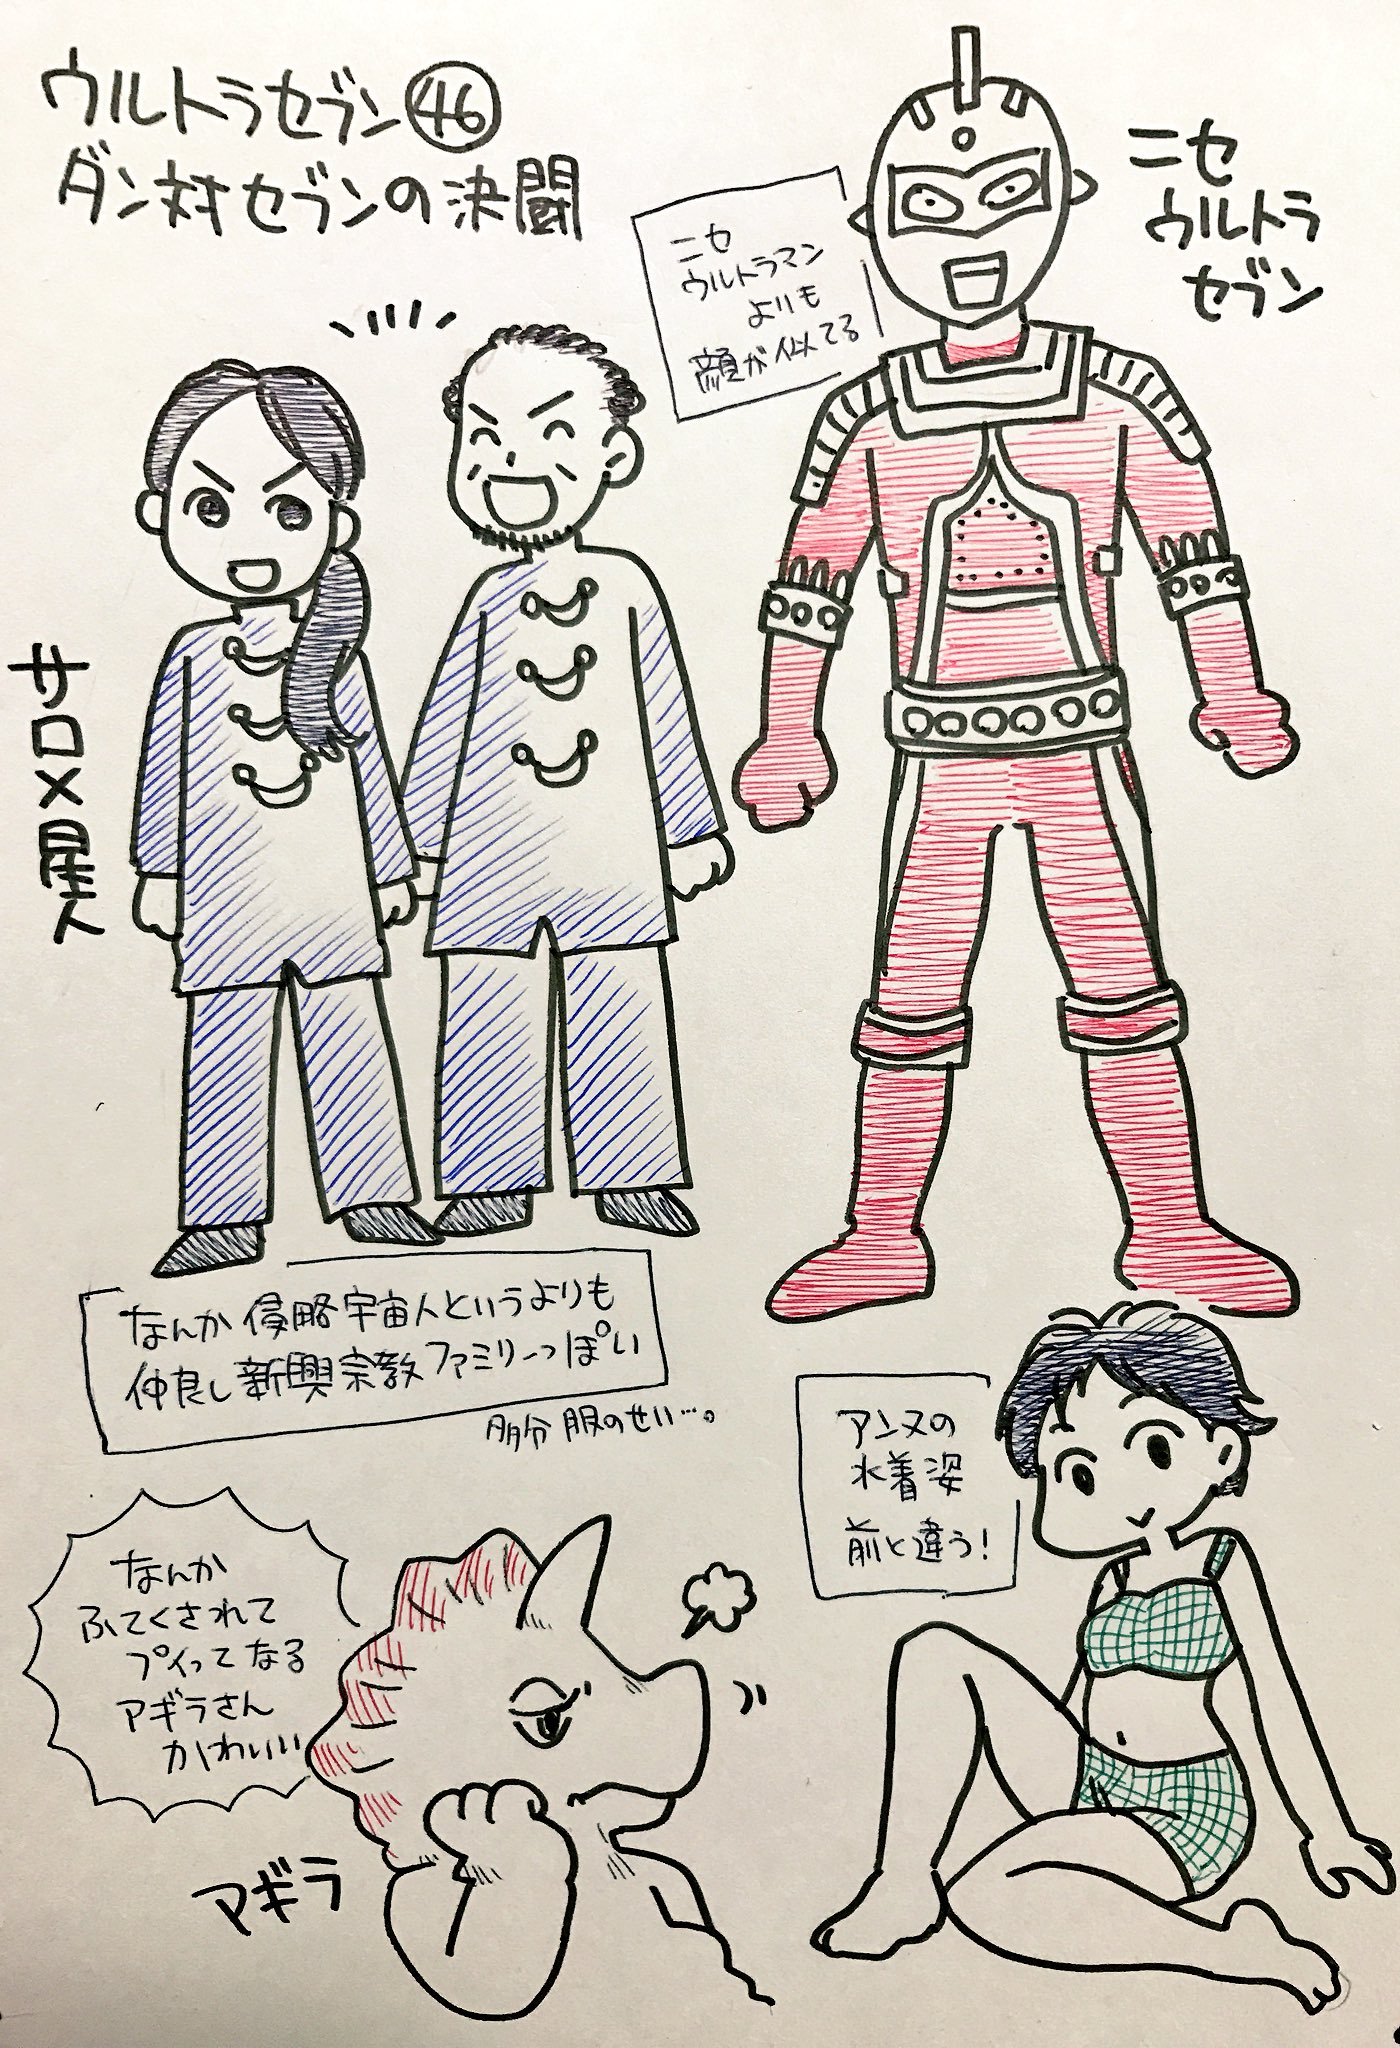 ウルトラセブン㊻
ダン対セブンの決闘
ニセ
ウルトラ
セブン
ニセ
ウルトラマン
よりも
顔が似てる
サロメ星人
なんか侵略宇宙人というよりも
仲良し新興宗教ファミリーっぽい
多分服のせい…。
アンヌの
水着姿
前と違う!
なんか
ふてくされて
プイってなる
アギラさん
かわいい
アギラ